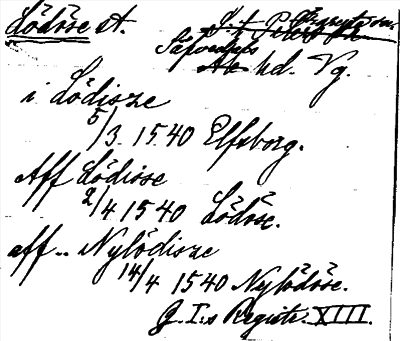 Lödöse st.
S:t Peders sn
Säfvedals
Ale hd. Vg.
i Lödisze
5/3 1540 Elfsborg.
Aff Lödisse
2/4 1540 Lödöse.
aff .. Nylödisze
14/4 1540 Nylödöse.
G. I:s Registr. XIII.